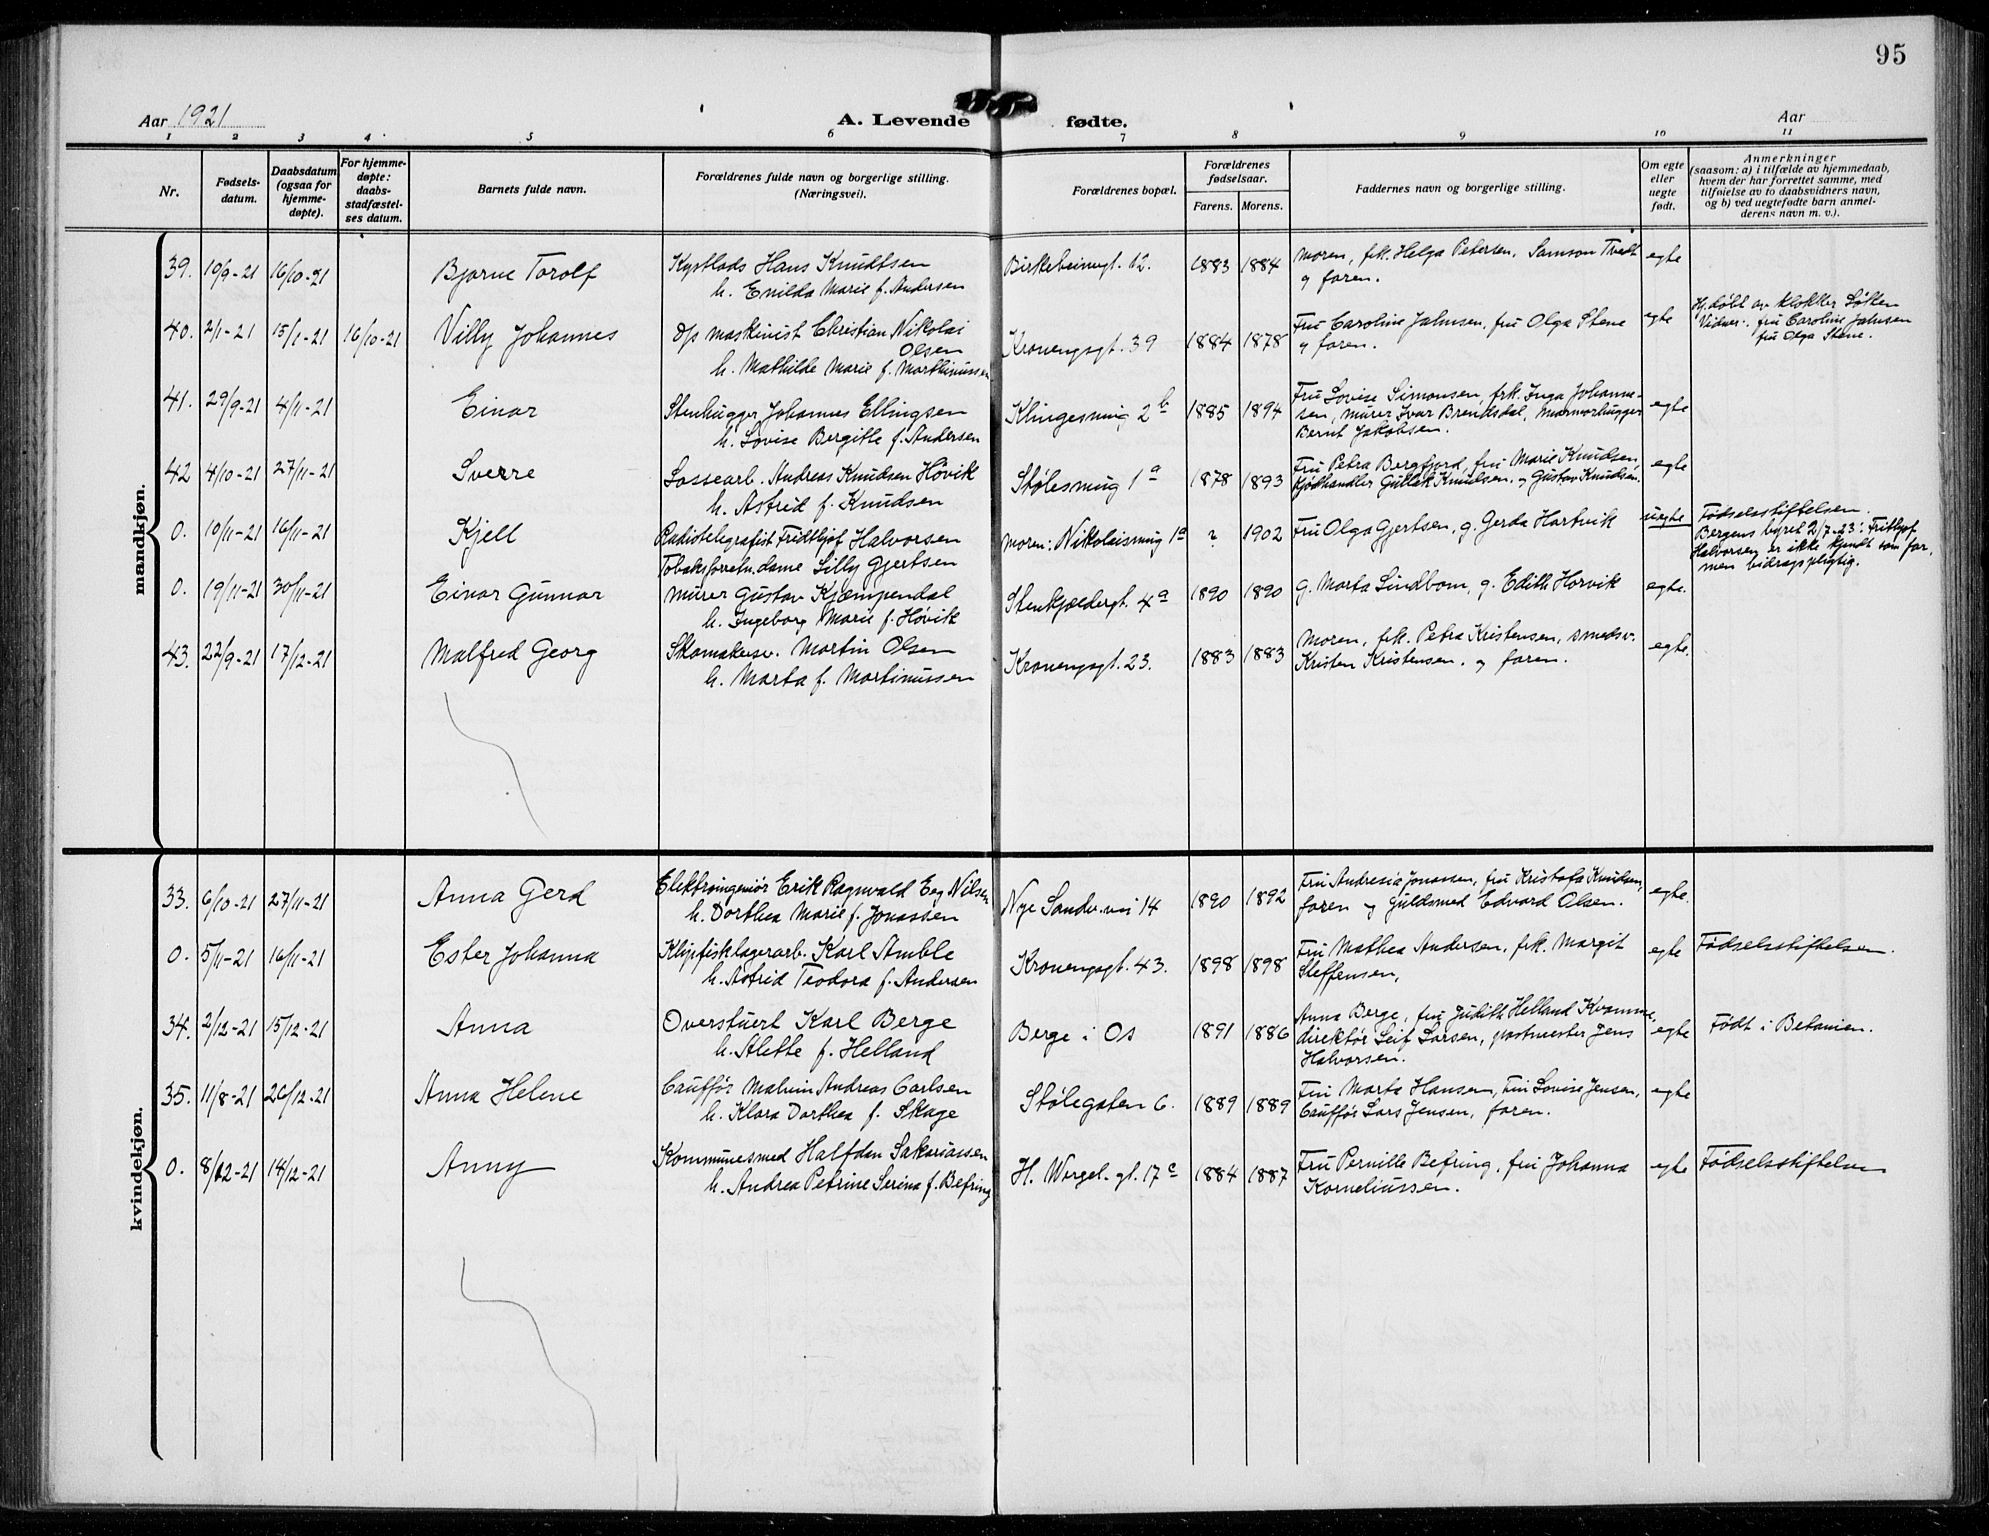 95
Aar 1921
A. Levende fødte.
Aar
1 2 3 4 5 6 7 8 9 10 11
Nr.
Fødsels-
datum.
Daabsdatum
(ogsaa for
hjemme-
døpte).
For hjemme-
døpte:
daabs-
stadfæstel-
ses datum.
Barnets fulde navn.
Forældrenes fulde navn og borgerlige stilling.
(Næringsvei).
Forældrenes bopæl.
Forældrenes
fødselsaar.
Farens. Morens.
Faddernes navn og borgerlige stilling.
Om egte
eller
uegte
født.
Anmerkninger
(saasom: a) i tilfælde av hjemmedaab,
hvem der har forrettet samme, med
tilføielse av to daabsvidners navn,
og b) ved uegtefødte barn anmel-
derens navn m. v.).
mandkjøn.
39. 19/9-21 16/10-21 Bjarne Torolf
Kystlods Hans Knudtsen
h. Enilda Marie f. Andersen
Birkebeinergt. 12. 1883 1884
Moren, frk. Helga Petersen, Samson Tvedt
og faren.
egte
40. 2/1-21 15/1-21 16/10-21 Villy Johannes
d/s maskinist Christian Nikolai
Olsen
h. Mathilde Marie f. Marthinussen
Kronengsgt. 39 1884 1878
Fru Caroline Jahnsen, fru Olga Stene
og faren.
egte
Hj.døbt av klokker Løtten
Vidner: fru Caroline Jahnsen
fru Olga Stene.
41. 29/9-21 4/11-21 Einar
Stenhugger Johannes Ellingsen
h. Lovise Bergitte f. Andersen
Klingesmug 2b 1885 1894
Fru Lovise Simonsen, frk. Inga Johanne-
sen, murer Ivar Brendsdal, Marmorhugger
Bernt Jakobsen.
egte
42 4/10-21 27/11-21 Sverre
Lossearb. Andreas Knudsen Høvik
h. Astrid f. Knudsen
Stølesmug 1a 1878 1893
Fru Petra Bergfjord, fru Marie Knudsen
Kjødhandler Gullak Knudsen, og Gustav Knudsen.
egte
0. 10/11-21 16/11-21 Kjell
Radiotelegrafist Fridthjof Halvorsen
Tobaksforretn.dame Lilly Gjertsen
moren: Nikolaismug 1a ? 1902
Fru Olga Gjertsen, g. Gerda Hartvik
uegte
Fødselsstiftelsen.
Bergens byret 2/7-23: Frithjof
Halvorsen er ikke kjendt som far,
men bidragspligtig.
0. 19/11-21 30/11-21 Einar Gunnar
Murer Gustav Kjæmpendal
h. Ingeborg Marie f. Høvik
Stenkjeldergt. 4a 1890 1890
g. Marta Lindbom, g. Edith Horvik
egte.
43. 22/9-21 17/12-21 Malfred Georg
Skomakersv. Martin Olsen
h. Marta f. Martinussen
Kronengsgt. 23. 1883 1883
Moren, frk. Petra Kristensen, smedsv.
Kristen Kristensen. og faren.
egte.
kvindekjøn.
33. 6/10-21 27/11-21 Anna Gerd
Elektroingeniør Erik Ragnvald Eeg Nilsen
h. Dorthea Marie f. Jonassen
Nye Sandv.vei 14 1890 1892
Fru Andresia Jonassen, fru Kristofa Knudsen,
faren og Guldsmed Edvard Olsen.
egte.
0. 5/11-21 16/11-21 Ester Johanna
Klipfisklagerarb. Karl Amble
h. Astrid Teodora f. Andersen
Kronengsgt. 43. 1898 1898
Fru Mathea Andersen, frk. Margit
Steffensen,
egte
Fødselsstiftelsen.
34. 2/12-21 15/12-21 Anna
Overstuert Karl Berge
h. Alette f. Helland
Berge i Os 1891 1886
Anna Berge, fru Judith Helland Kvamme,
direktør Leif Larsen, postmester Jens
Halvorsen.
egte
Født i Betanien.
35. 11/8-21 26/12-21 Anna Helene
Cauffør Malvin Andreas Carlsen
h. Klara Dorthea f. Skage
Stølegaten 6. 1889 1889
Fru Marta Hansen, Fru Lovise Jensen,
Cauffør Lars Jensen, faren.
egte
0. 8/12-21 14/12-21 Anny
Kommunesmed Halfdan Sakariassen
h. Andrea Petrine Serina f. Befring
H. Wergel. gt. 17c 1884 1887
Fru Pernille Befring, fru Johanna
Korneliussen.
egte
Fødselsstiftelsen